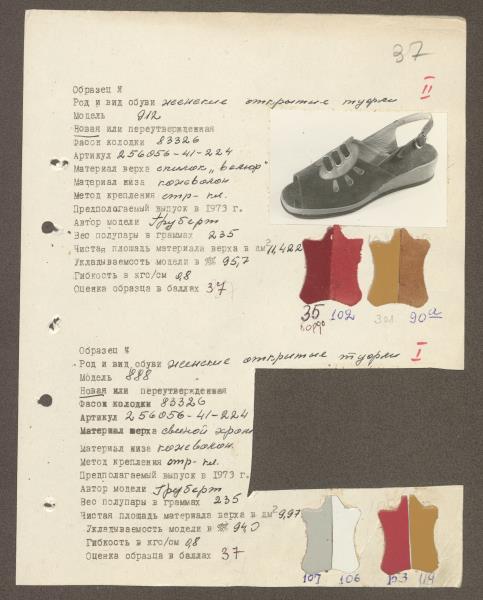 37
Образец №
II
Род и вид обуви женские открытые туфли
Модель 912
Новая или переутвержденная
Фасон колодки 83326
Артикул 256056-41-224
Материал верха спилок „велюр"
Материал низа кожволон
Метод крепления стр- кл.
Предполагаемый выпуск в 1973 г.
Автор модели Груберт
Вес полупары в граммах 235
Чистая площадь материала верха в дм² 11,422
Укладываемость модели в 95,7
Гибкость в кгс/см 0,8
Оценка образца в баллах 37
35 102 301 90а
бордо
Образец №
I
Род и вид обуви женские открытые туфли
Модель 888
Новая или переутвержденная
Фасон колодки 83326
Артикул 256056-41-224
Материал верха свиной хром
Материал низа кожволон
Метод крепления стр- кл.
Предполагаемый выпуск в 1973 г.
Автор модели Груберт
Вес полупары в граммах 235
Чистая площадь материала верха в дм² 9,97
Укладываемость модели в 94,0
Гибкость в кгс/см 0,8
Оценка образца в баллах 37
107 106 153 114